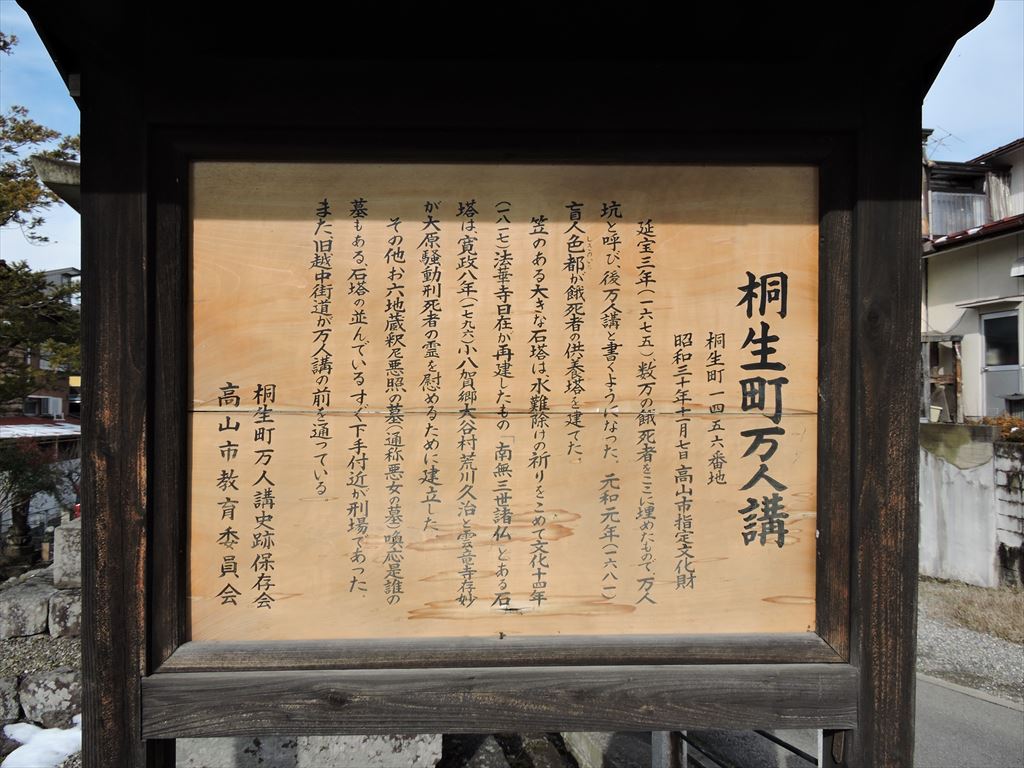 桐生町万人講
桐生町一四五六番地
昭和三十年十一月七日高山市指定文化財
延宝三年(一六七五)、数万の餓死者をここに埋めたもので、万人
坑と呼び、後万人講と書くようになった、元和元年(一六八一)
盲人色都が餓死者の供養塔を建てた、
しきのいち
笠のある大きな石塔は水難除けの祈りをこめて文化十四年
(一八一七)法華寺日在が再建したもの「南無三世諸仏」とある石
塔は、寛政八年(一七九六)小八賀郷大谷村荒川久治と雲竜寺存妙
が大原騒動刑死者の霊を慰めるために建立した
その他お六地蔵釈尼悪照の墓(通称悪女の墓)喚応是誰の
墓もある、石塔の並んでいるすぐ下手付近が刑場であった、
また旧越中街道が万人講の前を通っている
桐生町万人講史跡保存会
高山市教育委員会